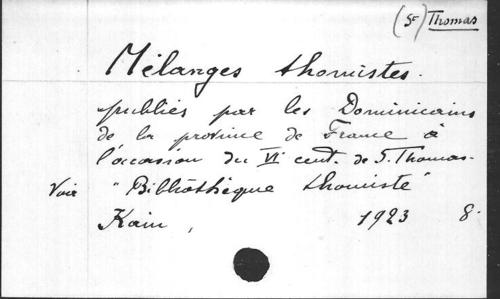 (St) Thomas
Mélanges thomistes.
publiés par les Dominicains
de la province de France à
l'occasion du VI cent. de S. Thomas.
Voir "Bibliothèque thomiste"
Kain, 1923 8°